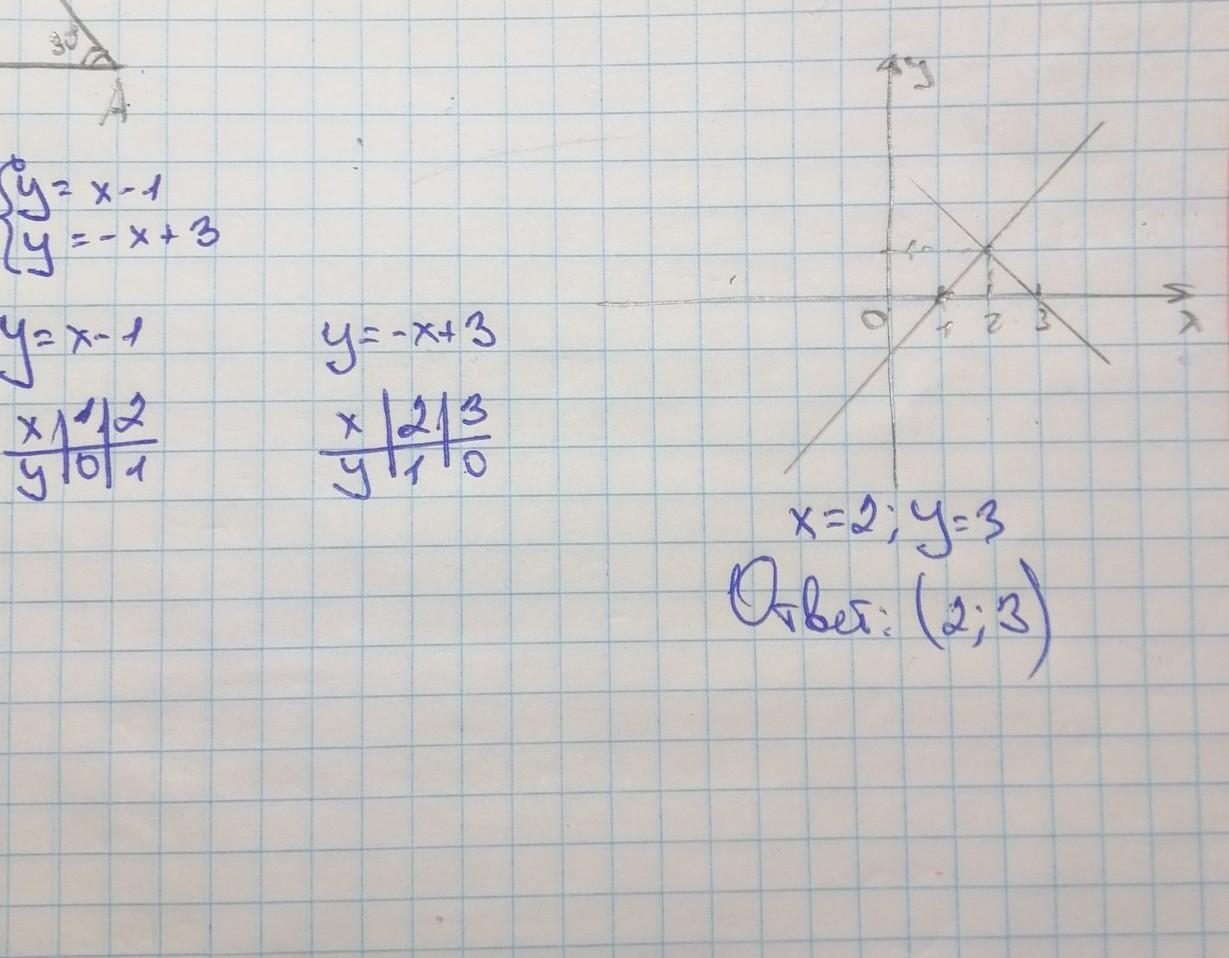 3
A
y = x - 1
y = - x + 3
y = x - 1
x 1 2
y 0 1
y = - x + 3
x 2 3
y 1 0
y
1
0 1 2 3
x
x = 2; y = 3
Ответ: (2; 3)